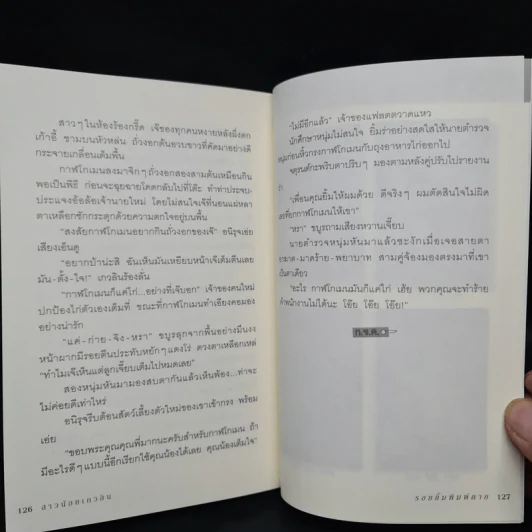 สาวๆ ในห้องร้องกรี๊ด เจ๊ของทุกคนหงายหลังผึ่งตก
เก้าอี้ ชามบนหัวหล่น ถั่วงอกต้นอวบขาวที่คัดมาอย่างดี
กระจายเกลื่อนเต็มพื้น
กาฟโกเมนลงมาจิกๆ ถั่วงอกสองสามต้นเหมือนกิน
พอเป็นพิธี ก่อนจะฉุยฉายโดดกลับไปที่โต๊ะ ทำท่าประจบ-
ประแจงอ้อล้อเจ้านายใหม่ โดยไม่สนใจเจ๊ที่นอนแผ่หลา
ตาเหลือกชักกระตุกด้วยความตกใจอยู่บนพื้น
"สงสัยกาฟโกเมนอยากกินถั่วงอกของเจ๊" อนิรุจเอ่ย
เสียงเอ็นดู
"อยากบ้าน่ะสิ อันเห็นมันเหยียบหน้าเจ๊เต็มตีนเลย
มัน-ตั้ง-ใจ!" เกวลินร้องลั่น
"กาฟโกเมนมันก็แค่ไก่...อย่างที่เจ๊บอก" เจ้าของคนใหม่
ปกป้องไก่ตัวเองเต็มที่ ขณะที่กาฟโกเมนทำเอียงคอมอง
อย่างน่ารัก
"แค่-ก่าย-จิง-หรา" ชบูรลุกจากพื้นอย่างมึนงง
หน้าผากมีรอยตีนประทับหยักๆ แดงโร่ ดวงตาเหลือกเหล่
"ทำไมเจ๊เห็นแต่ลูกเจี๊ยบเต็มไปหมดเลย"
สองหนุ่มหันมามองสบตากันแล้วเห็นพ้อง...ท่าจะ
ไม่ค่อยดีเท่าไหร่
อนิรุจรีบต้อนสัตว์เลี้ยงตัวใหม่ของเขาเข้ากรง พร้อม
เอ่ย
"ขอบพระคุณคุณพี่มากนะครับสำหรับกาฟโกเมน ถ้า
มีอะไรดีๆ แบบนี้อีกเรียกใช้คุณน้องได้เลย คุณน้องเต็มใจ"
126 สาวน้อยเกวลิน
"ไม่มีอีกแล้ว" เจ้าของแฟลตตวาดแหว
นักศึกษาหนุ่มไม่สนใจ ยิ้มร่าอย่างสดใสให้นายตำรวจ
หนุ่มก่อนหิ้วกรงกาฟโกเมนกับถุงอาหารไก่ออกไป
จตุรงค์กะพริบตาปริบๆ มองตามหลังคู่ปรับไปรายงาน
ว่า
"เพื่อนคุณยิ้มให้ผมด้วย ดีจริงๆ ผมตัดสินใจไม่ผิด
เลยที่ยกกาฟโกเมนให้เขา"
"หรา" ชบูรถามเสียงหวานเจี๊ยบ
นายตำรวจหนุ่มหันมาแล้วชะงักเมื่อเจอสายตา
อาฆาต-มาดร้าย-พยาบาท สามคู่จ้องมองตรงมาที่เขา
เป็นตาเดียว
"อะไร กาฟโกเมนมันก็แค่ไก่ เฮ้ย พวกคุณจะทำร้าย
เจ้าพนักงานไม่ได้นะ โอ๊ย โอ๊ย โอ๊ย!"
ก.ข.ค.
รอยยิ้มพิมพ์ดาย 127